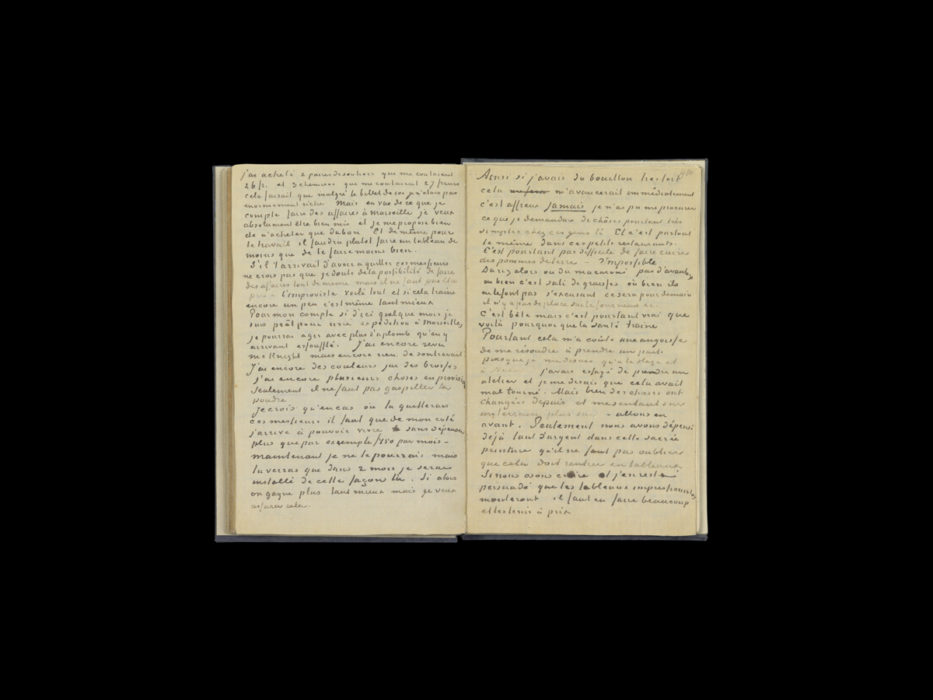 j'ai acheté 2 paires de souliers qui me coutaient
26 fr. et 3 chemises qui me coutaient 27 francs
cela faisait que malgré le billet de 100 je n'étais pas
enormement riche. Mais en vue de ce que je
compte faire des affaires à Marseille je veux
absolument être bien mis et je me propose bien
de n'acheter que du bon. Et de même pour
le travail il faudra plutot faire un tableau de
moins que de le faire moins bien.
S'il t'arrivait d'avoir à quitter ces messieurs
ne crois pas que je doute de la possibilité de faire
des affaires tout de meme mais il ne faut pas être
pris à l'improviste voila tout et si cela traine
encore un peu c'est même tant mieux
Pour mon compte si d'ici quelque mois je
suis prêt pour une expédition à Marseille,
je pourrai agir avec plus d'aplomb qu'en y
arrivant essoufflé. J'ai encore revu
McKnight mais encore rien de son travail
J'ai encore des couleurs j'ai des brosses
j'ai encore plusieurs choses en provision
Seulement il ne faut pas gaspiller la
poudre
je crois qu'en cas où tu quitterais
ces messieurs il faut que de mon coté
j'arrive à pouvoir vivre sans dépenser
plus que par exemple 150 par mois –
maintenant je ne le pourrais mais
tu verras que dans 2 mois je serai
installé de cette façon là. Si alors
on gagne plus tant mieux mais je veux
assurer cela.
Ainsi si j'avais du bouillon très fort
cela m'avancerait immédiatement
c'est affreux jamais je n'ai pu me procurer
ce que je demandais de choses pourtant très
simples chez ces gens là. Et c'est partout
le même dans ces petits restaurants.
C'est pourtant pas difficile de faire cuire
des pommes de terre – Impossible.
Du riz alors ou du macaroni pas d'avantage
ou bien c'est sali de graisse, où bien ils
ne le font pas s'excusant ce sera pour demain
il n'y a pas de place sur le fourneau &c.
C'est bête mais c'est pourtant vrai que
voilà pourquoi que la santé traine
Pourtant cela m'a couté une angoisse
de me résoudre à prendre un parti
puisque je me disais qu'à la Haye et
à Nuenen j'avais essayé de prendre un
atelier et je me disais que cela avait
mal tourné. Mais bien des choses ont
changées depuis et me sentant sur
un terrain plus sûr – allons en
avant. Seulement nous avons dépensé
déjà tant d'argent dans cette sacrée
peinture qu'il ne faut pas oublier
que cela doit rentrer en tableaux
Si nous osons croire et j'en reste
persuadé que les tableaux impressionistes
monteront il faut en faire beaucoup
et les tenir à prix